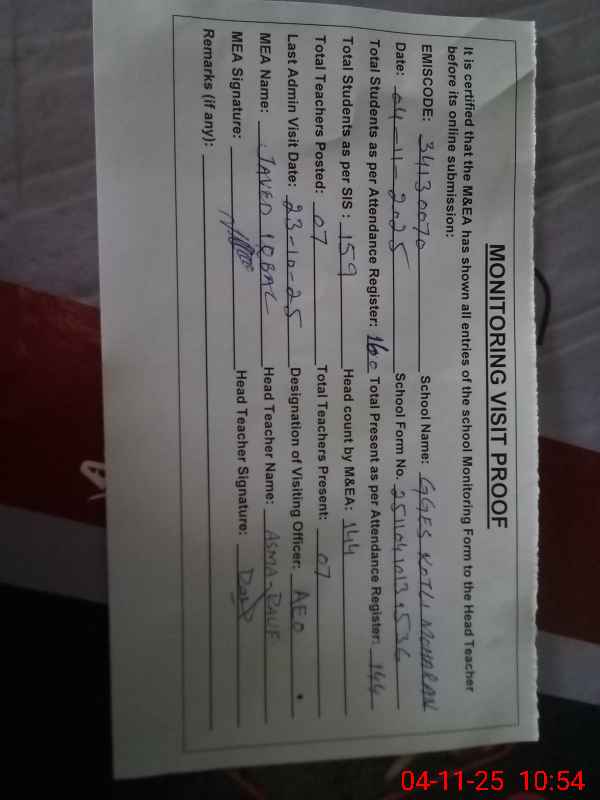 MONITORING VISIT PROOF
It is certified that the M&EA has shown all entries of the school Monitoring Form to the Head Teacher
before its online submission:
EMISCODE: 34130070 School Name: GGES KOTLI MOHARAN
Date: 04-11-2025 School Form No.
Total Students as per Attendance Register: 160 Total Present as per Attendance Register: 144
Total Students as per SIS : 159 Head count by M&EA: 144
Total Teachers Posted: 07 Total Teachers Present: 07
Last Admin Visit Date: 23-10-25 Designation of Visiting Officer: AEO
MEA Name: JAVED IQBAL Head Teacher Name: ASMA-RAUF
MEA Signature: Head Teacher Signature:
Remarks (if any):
04-11-25 10:54